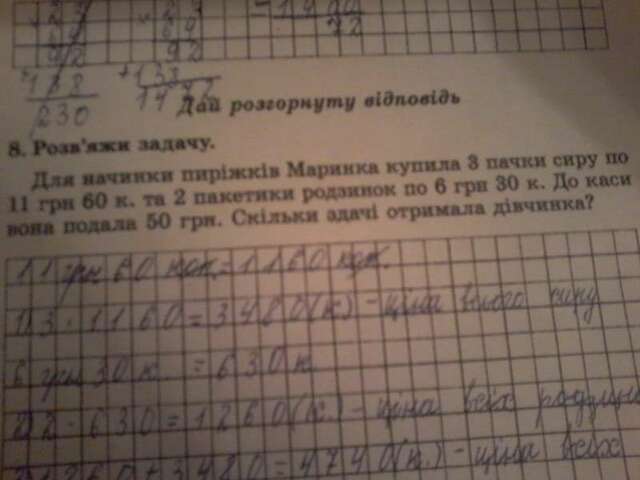 92
92
72
+138
+138
230
1472
Дай розгорнуту відповідь
8. Розв'яжи задачу.
Для начинки пиріжків Маринка купила 3 пачки сиру по
11 грн 60 к. та 2 пакетики родзинок по 6 грн 30 к. До каси
вона подала 50 грн. Скільки здачі отримала дівчинка?
11 грн 60 коп.=1160 коп.
1) 3·1160=3480(к) - ціна всього сиру
6 грн 30 к. =630 к.
2) 2·630=1260(к.) - ціна всіх
3) 1260+3480=4740(к.) - ціна всіх